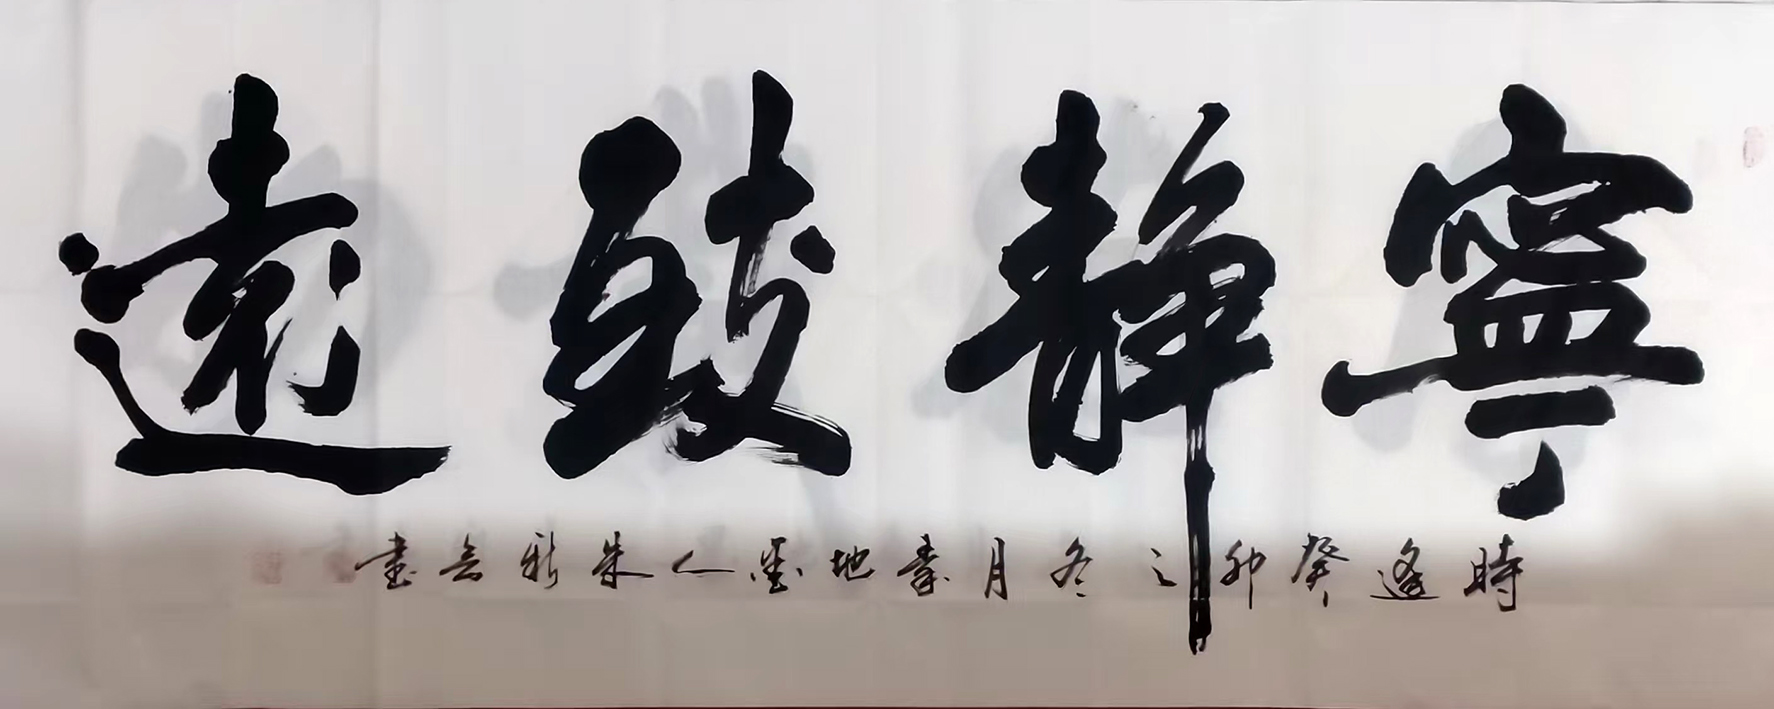 寧靜致遠
時逢癸卯之冬月秦地墨人朱新云書